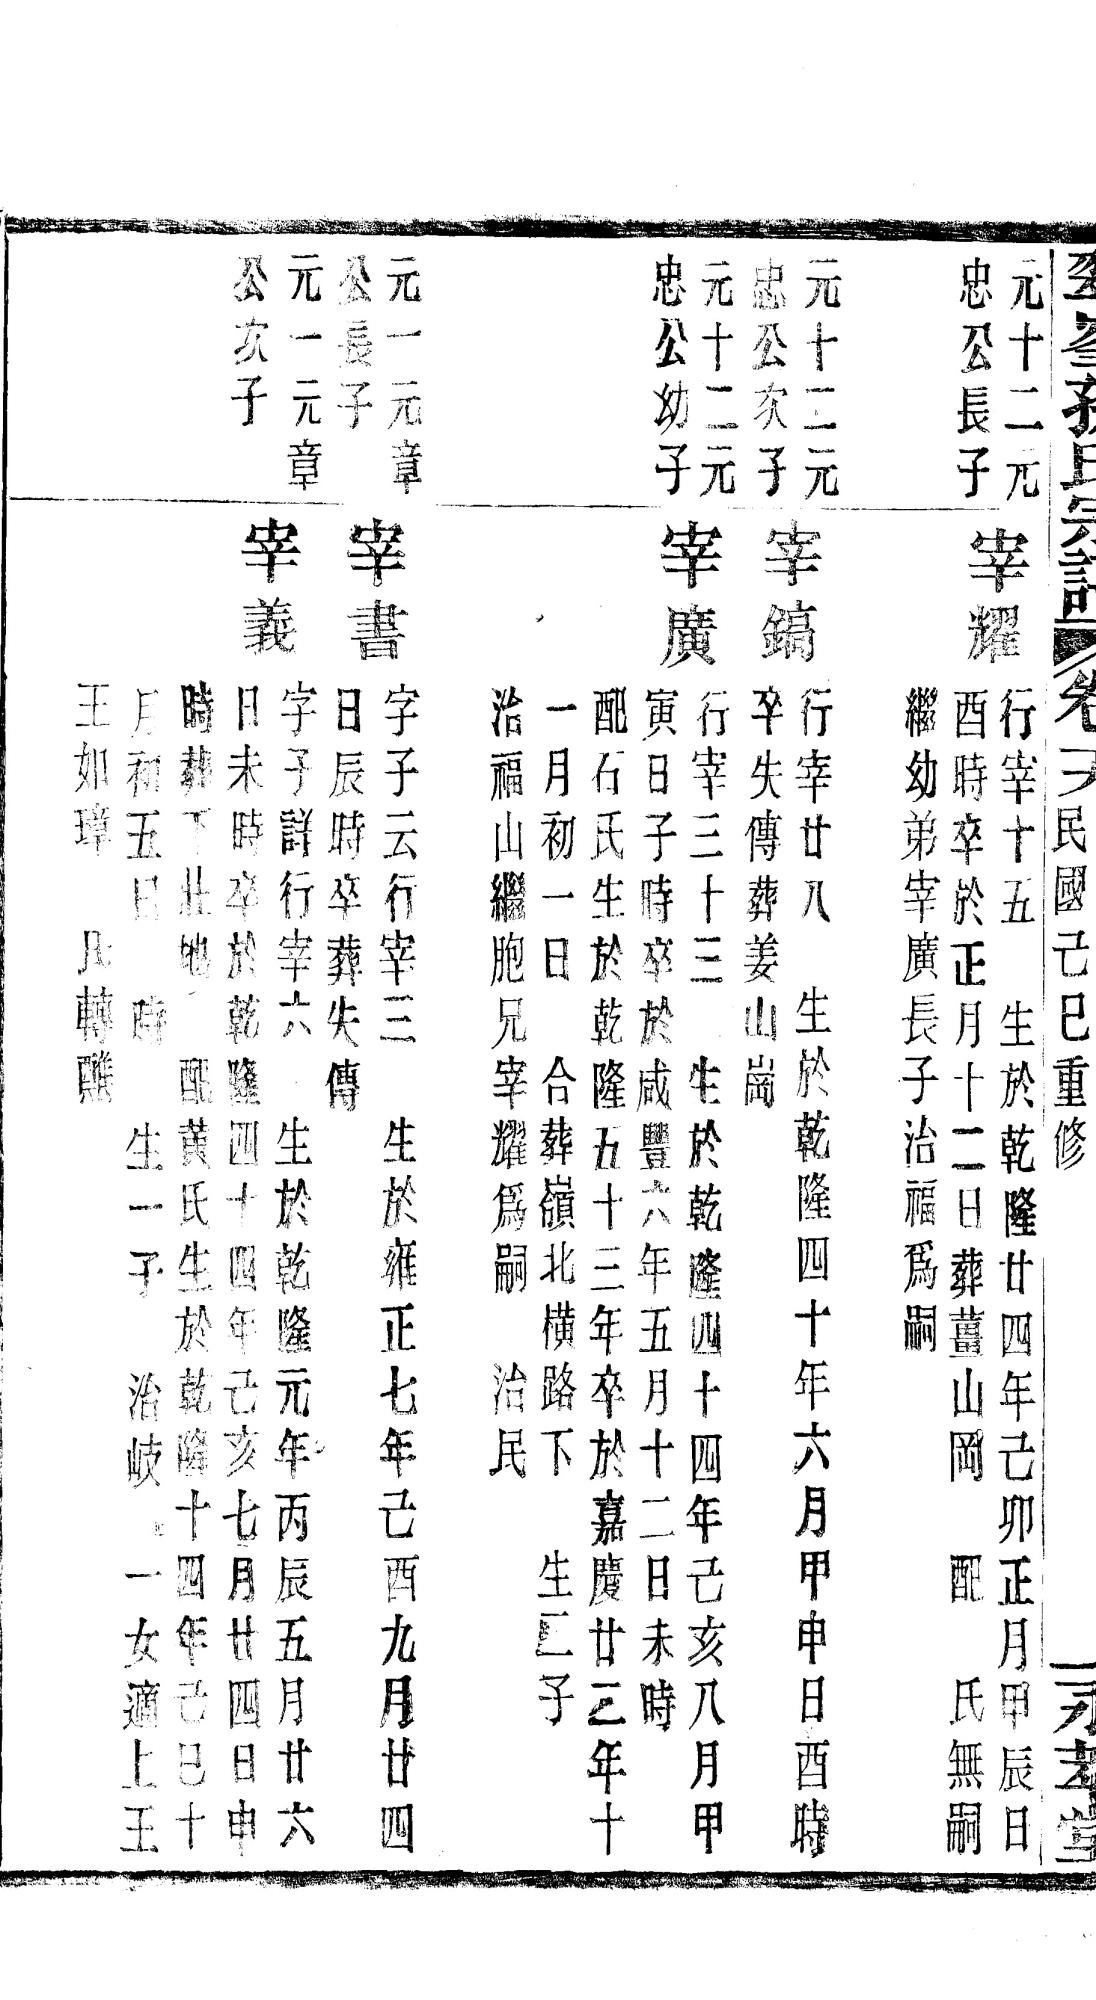 氏宗譜
卷
民國己巳重修
元十二元
忠公長子
宰耀
行宰十五 生於乾隆廿四年己卯正月甲辰日
酉時卒於正月十二日葬薑山岡 配 氏無嗣
繼幼弟宰廣長子治福爲嗣
元十二元
忠公次子
宰鎬
行宰廿八 生於乾隆四十年六月甲申日酉時
卒失傳葬姜山崗
元十二元
忠公幼子
宰廣
行宰三十三 生於乾隆四十四年己亥八月甲
寅日子時卒於咸豐六年五月十二日未時
配石氏生於乾隆五十三年卒於嘉慶廿三年十
一月初一日 合葬嶺北橫路下 生二子
治福山繼胞兄宰耀爲嗣 治民
元一元章
公長子
宰書
字子云行宰三 生於雍正七年己酉九月廿四
日辰時卒葬失傳
元一元章
公次子
宰義
字子詳行宰六 生於乾隆元年丙辰五月廿六
日未時卒於乾隆四十四年己亥七月廿四日申
時葬下 地 配黃氏生於乾隆十四年己巳十
月初五日 時 生一子 治岐 一女適上王
王如璋 凡轉離